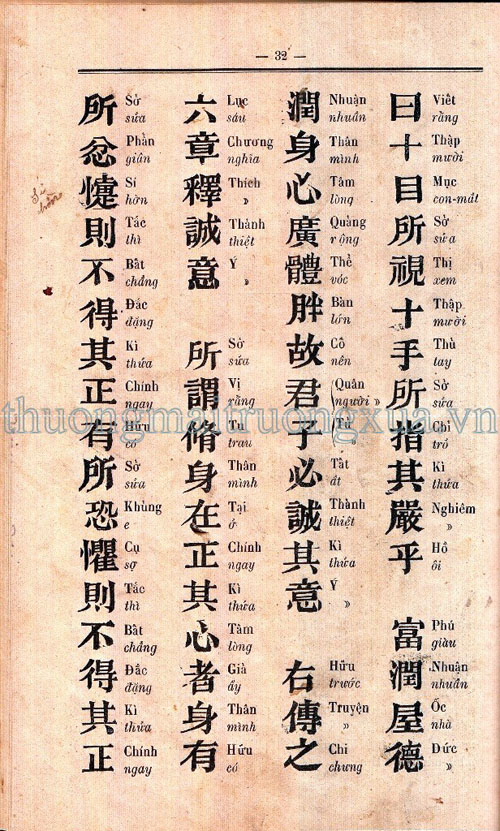 — 32 —
曰十目所視十手所指其嚴乎 富潤屋德
Viết ràng Thập mười Mục con-mắt Sở sửa Thị xem Thập mười Thủ tay Sở sửa Chỉ trỏ Kì thửa Nghiêm » Hồ ôi Phú giàu Nhuận nhuần Ốc nhà Đức »
潤身心廣體胖故君子必誠其意 右傳之
Nhuận nhuần Thân mình Tâm lòng Quảng rộng Thể vóc Bàn lớn Cố nên Quân Tử người » Tất ắt Thành thiệt Kì thửa Ý » Hữu trước Truyện » Chi chưng
六章釋誠意 所謂脩身在正其心者身有
Lục sáu Chương nghĩa Thích » Thành thiệt Ý » Sở sửa Vị rằng Tu trau Thân mình Tại ở Chính ngay Kì thửa Tâm lòng Giả ấy Thân mình Hữu có
所忿懥則不得其正有所恐懼則不得其正
Sở sửa Phẫn giận Sí hờn Tắc thì Bất chẳng Đắc đặng Kì thửa Chính ngay Hữu có Sở sửa Khủng e Cụ sợ Tắc thì Bất chẳng Đắc đặng Kì thửa Chính ngay
thuongmaitruongxua.vn